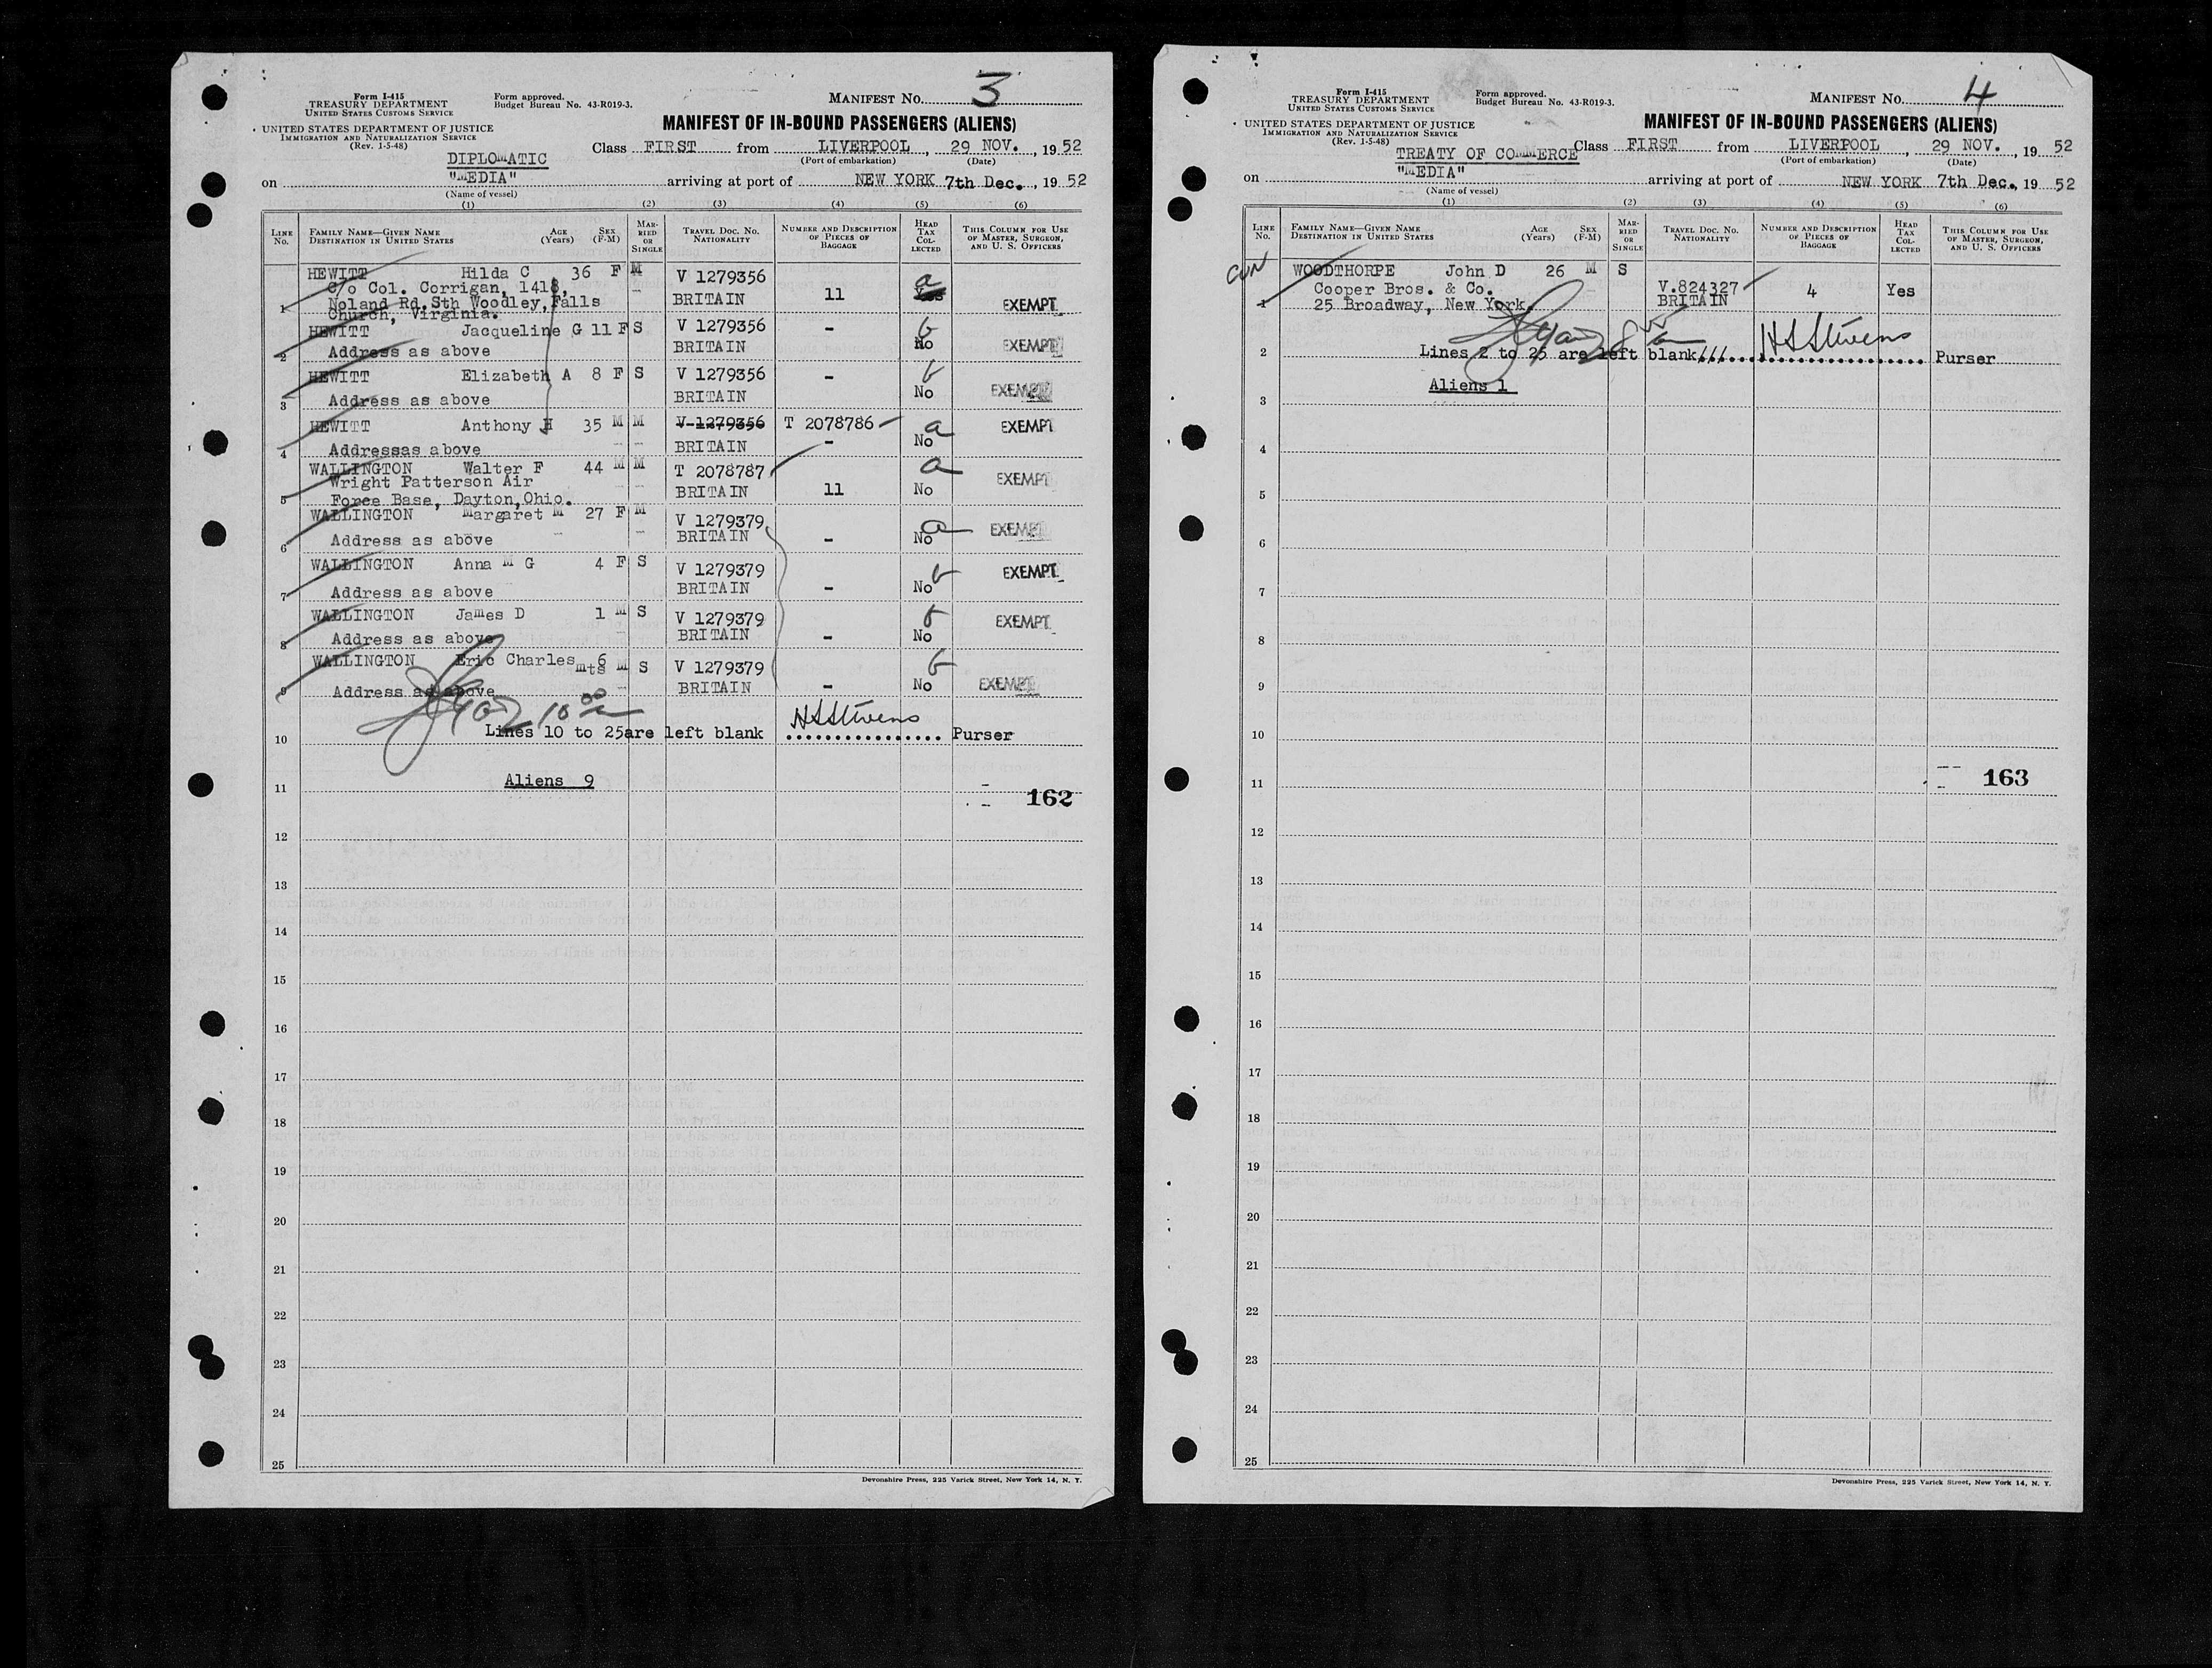 Form I-415
TREASURY DEPARTMENT
UNITED STATES CUSTOMS SERVICE
Form approved.
Budget Bureau No. 43-R019-3.
MANIFEST No. 3
UNITED STATES DEPARTMENT OF JUSTICE
IMMIGRATION AND NATURALIZATION SERVICE
(Rev. 1-5-48)
MANIFEST OF IN-BOUND PASSENGERS (ALIENS)
DIPLOMATIC
Class FIRST from LIVERPOOL, 29 NOV., 1952
(Port of embarkation) (Date)
on "MEDIA" arriving at port of NEW YORK 7th Dec., 1952
(Name of vessel)
(1) (2) (3) (4) (5) (6)
LINE No. FAMILY NAME—GIVEN NAME DESTINATION IN UNITED STATES AGE (Years) SEX (F-M) MARRIED OR SINGLE TRAVEL DOC. NO. NATIONALITY NUMBER AND DESCRIPTION OF PIECES OF BAGGAGE HEAD TAX COLLECTED THIS COLUMN FOR USE OF MASTER, SURGEON, AND U. S. OFFICERS
HEWITT Hilda C 36 F M V 1279356 a
C/o Col. Corrigan, 1418,
1 Noland Rd. Sth Woodley, Falls BRITAIN 11 Yes EXEMPT
Church, Virginia.
HEWITT Jacqueline G 11 F S V 1279356 - b
2 Address as above BRITAIN No EXEMPT
HEWITT Elizabeth A 8 F S V 1279356 - b
3 Address as above BRITAIN No EXEMPT
HEWITT Anthony H 35 M M V 1279356 T 2078786 a EXEMPT
4 Addressas above BRITAIN - No
WALLINGTON Walter F 44 M M T 2078787 a
Wright Patterson Air EXEMPT
5 Force Base, Dayton, Ohio. BRITAIN 11 No
WALLINGTON Margaret M 27 F M V 1279379 a EXEMPT
6 Address as above BRITAIN - No
WALLINGTON Anna M G 4 F S V 1279379 b EXEMPT
7 Address as above BRITAIN - No
WALLINGTON James D 1 M S V 1279379 b EXEMPT
8 Address as above BRITAIN - No
WALLINGTON Eric Charles 6 mts M S V 1279379 b
9 Address as above BRITAIN - No EXEMPT
10 Lines 10 to 25are left blank H S Stevens Purser
11 Aliens 9 162
12
13
14
15
16
17
18
19
20
21
22
23
24
25
Devonshire Press, 225 Varick Street, New York 14, N. Y.
Form I-415
TREASURY DEPARTMENT
UNITED STATES CUSTOMS SERVICE
Form approved.
Budget Bureau No. 43-R019-3.
MANIFEST No. 4
UNITED STATES DEPARTMENT OF JUSTICE
IMMIGRATION AND NATURALIZATION SERVICE
(Rev. 1-5-48)
MANIFEST OF IN-BOUND PASSENGERS (ALIENS)
TREATY OF COMMERCE
Class FIRST from LIVERPOOL, 29 NOV., 1952
(Port of embarkation) (Date)
on "MEDIA" arriving at port of NEW YORK 7th Dec., 1952
(Name of vessel)
(1) (2) (3) (4) (5) (6)
LINE No. FAMILY NAME—GIVEN NAME DESTINATION IN UNITED STATES AGE (Years) SEX (F-M) MARRIED OR SINGLE TRAVEL DOC. NO. NATIONALITY NUMBER AND DESCRIPTION OF PIECES OF BAGGAGE HEAD TAX COLLECTED THIS COLUMN FOR USE OF MASTER, SURGEON, AND U. S. OFFICERS
WOODTHORPE John D 26 M S
Cooper Bros. & Co. V.824327 4 Yes
1 25 Broadway, New York BRITAIN
2 Lines 2 to 25 are left blank H S Stevens Purser
Aliens 1
3
4
5
6
7
8
9
10
11 163
12
13
14
15
16
17
18
19
20
21
22
23
24
25
Devonshire Press, 225 Varick Street, New York 14, N. Y.